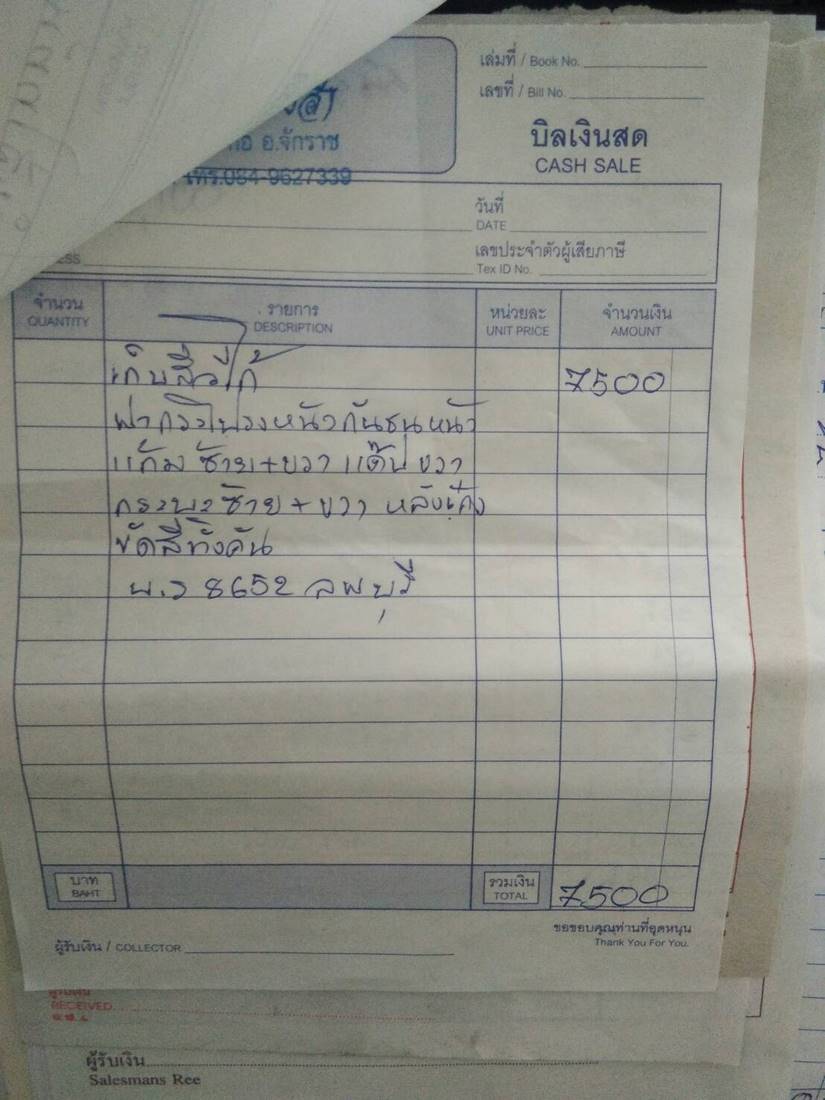 เล่มที่ / Book No.
เลขที่ / Bill No.
บิลเงินสด
CASH SALE
อ.จักราช
โทร.084-9627339
วันที่
DATE
เลขประจำตัวผู้เสียภาษี
Tex ID No.
จำนวน รายการ หน่วยละ จำนวนเงิน
QUANTITY DESCRIPTION UNIT PRICE AMOUNT
เก็บสีวีโก้ 7500
ฝากระโปรงหน้า กันชนหน้า
แก้มซ้าย+ขวา ขวา
กระบะซ้าย+ขวา หลังเก๋ง
ขัดสีทั้งคัน
8652 ลพบุรี
บาท รวมเงิน 7500
BAHT TOTAL
ขอขอบคุณท่านที่อุดหนุน
Thank You For You.
ผู้รับเงิน / COLLECTOR
ผู้รับเงิน
RECEIVED
ผู้รับเงิน
Salesmans Ree